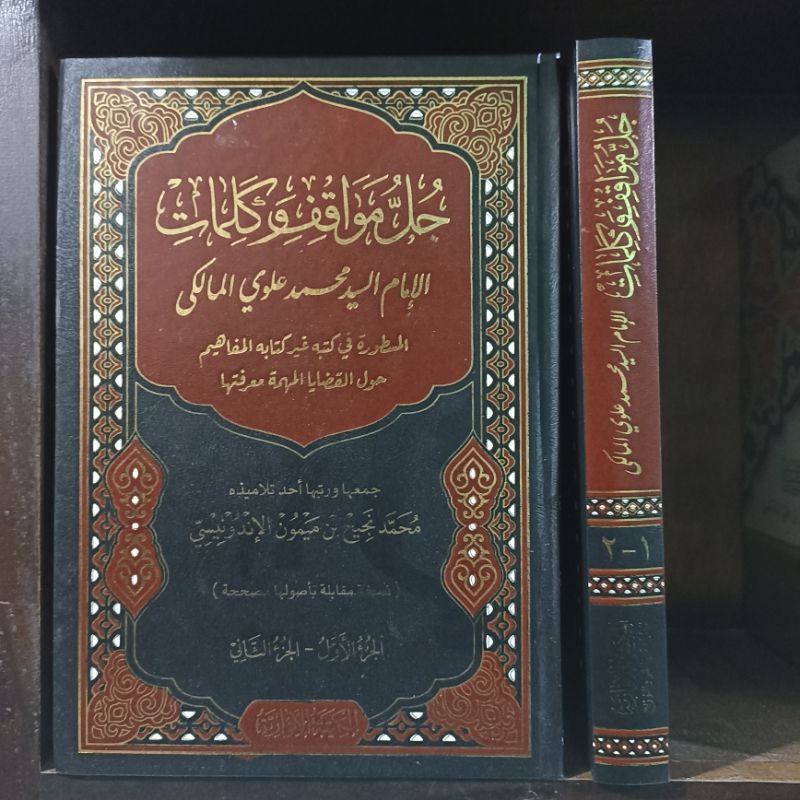 جُلُّ مَوَاقِفِ وَكَلِمَاتِ
الإمام السيد محمد علوي المالكي
المسطورة في كتبه غير كتابه المفاهيم
حول القضايا المهمة معرفتها
جمعها ورتبها أحد تلاميذه
مُحَمَّد نَجِيح بْن مَيْمُون الإِنْدُونِيسِيّ
( نسخة مقابلة بأصولها مصححة )
الجُزءُ الأَوَّلُ - الجُزءُ الثَّانِي
جُلُّ مَوَاقِفِ وَكَلِمَاتِ
الإمام السيد محمد علوي المالكي
١-٢